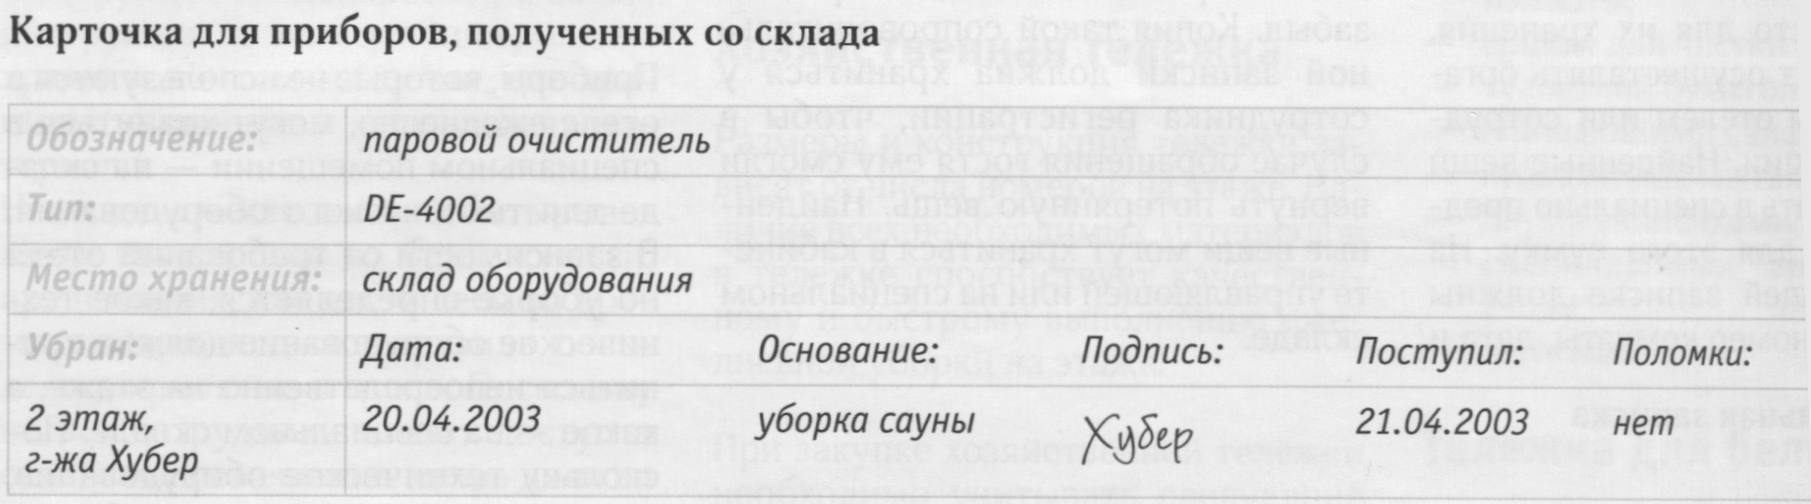 Карточка для приборов, полученных со склада
Обозначение: паровой очиститель
Тип: DE-4002
Место хранения: склад оборудования
Убран: Дата: Основание: Подпись: Поступил: Поломки:
2 этаж, 20.04.2003 уборка сауны Хубер 21.04.2003 нет
г-жа Хубер